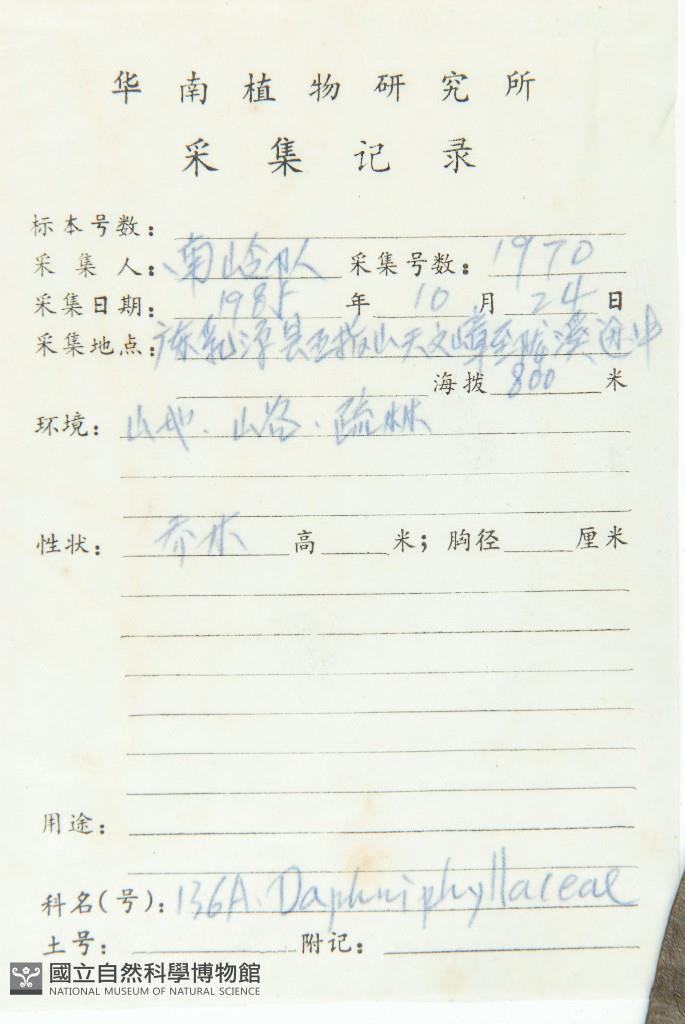 华南植物研究所
采集记录
标本号数:
采集人: 南岭队 采集号数: 1970
采集日期: 1985 年 10 月 24 日
采集地点: 广东乳源县五指山天文嶂至
海拨 800 米
环境: 山地、山谷、疏林
性状: 乔木 高 米; 胸径 厘米
用途:
科名(号): 136A. Daphniphyllaceae
土号: 附记:
國立自然科學博物館
NATIONAL MUSEUM OF NATURAL SCIENCE